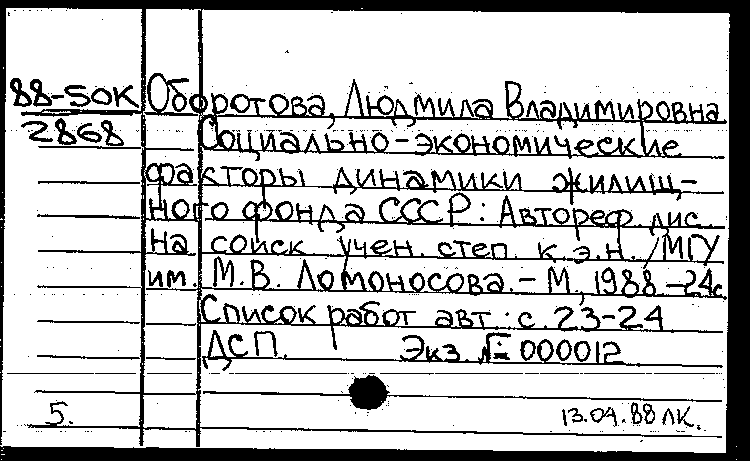 88-5ОК Оборотова, Людмила Владимировна
2868 Социально-экономические
факторы динамики жилищ-
ного фонда СССР: Автореф. дис.
на соиск учен. степ. к.э.н. /МГУ
им. М.В. Ломоносова. - М., 1988 - 24с.
Список работ авт.: с. 23-24
ДСП. Экз. № 000012
5. 13.04.88 ЛК.